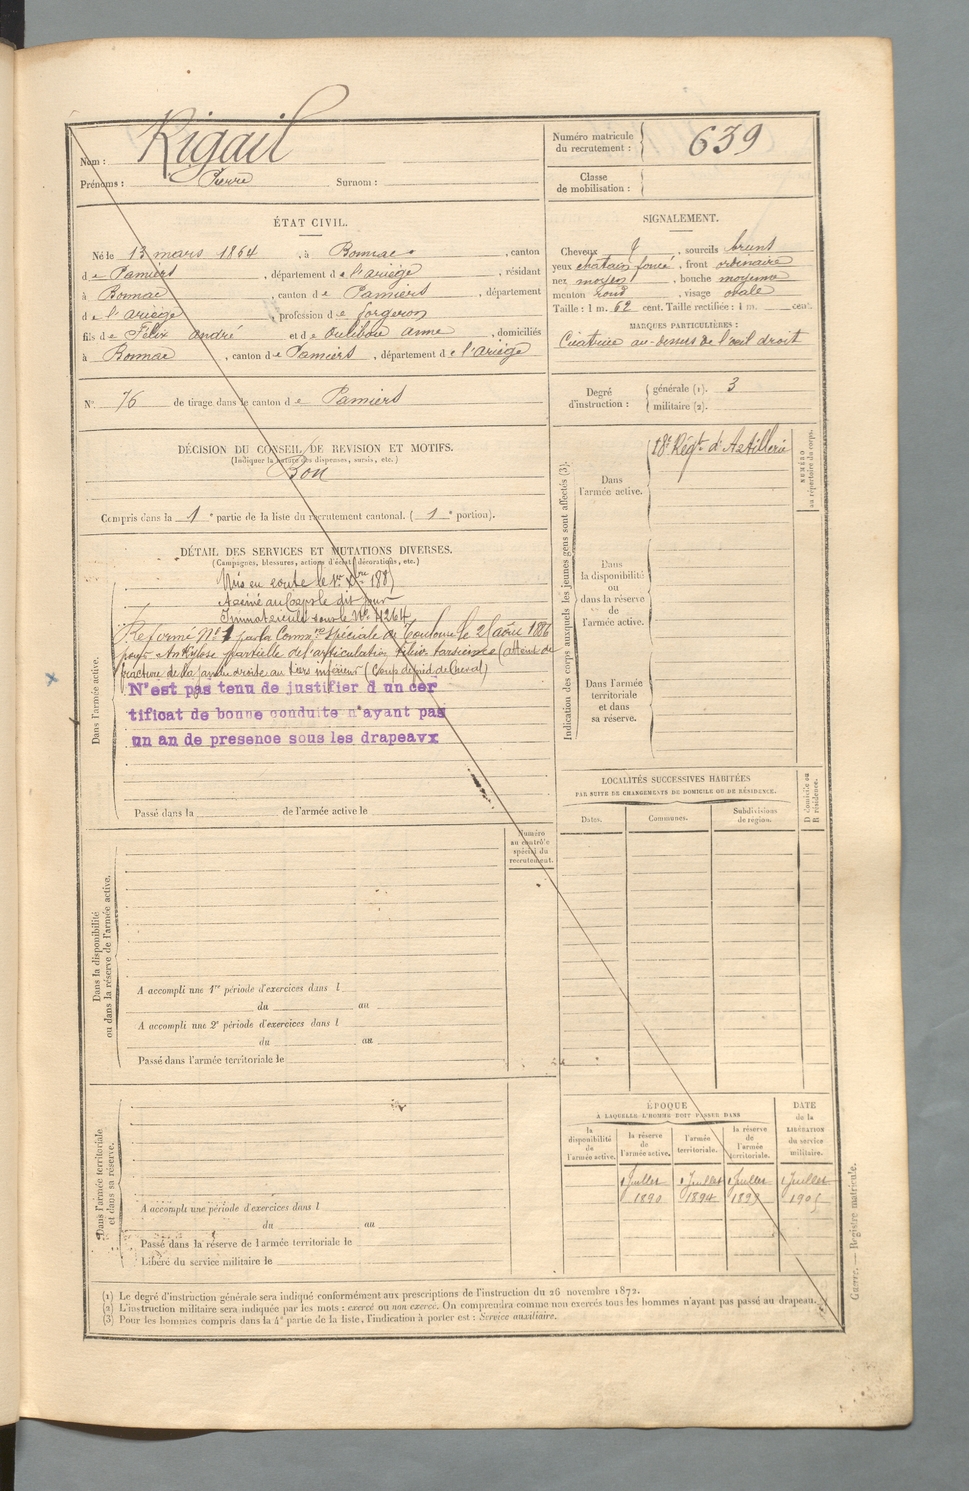 Nom : Rigail
Prénoms : Pierre Surnom :
Numéro matricule
du recrutement : 639
Classe
de mobilisation :
ÉTAT CIVIL.
Né le 13 mars 1864, à Bonnac, canton
de Pamiers, département de l'ariège, résidant
à Bonnac, canton de Pamiers, département
de l'ariège, profession de forgeron
fils de Félix andré et de Oulibou anne, domiciliés
à Bonnac, canton de Pamiers, département de l'ariège
SIGNALEMENT.
Cheveux, sourcils bruns
yeux chatain foncé, front ordinaire
nez moyen, bouche moyenne
menton rond, visage ovale
Taille : 1 m. 62 cent. Taille rectifiée : 1 m. cent.
MARQUES PARTICULIÈRES :
Cicatrice au-dessus de l'œil droit
N° 76 de tirage dans le canton de Pamiers
Degré
d'instruction :
générale (1). 3
militaire (2).
DÉCISION DU CONSEIL DE REVISION ET MOTIFS.
(Indiquer la nature des dispenses, sursis, etc.)
Bon
Compris dans la 1e partie de la liste du recrutement cantonal. (1e portion).
DÉTAIL DES SERVICES ET MUTATIONS DIVERSES.
(Campagnes, blessures, actions d'éclat, décorations, etc.)
Dans l'armée active.
Mis en route le 1er Xbre 188
Arrivé au Corps le dit jour
Immatriculé sous le N° 4264
Réformé N° 1 par la Common Spéciale de Toulouse le 21 août 1886
pour Ankylose partielle de l'articulation tibio tarsienne (atteint de
fracture de la jambe droite au tiers inférieur (Coup de pied de Cheval)
N'est pas tenu de justifier d un cer
tificat de bonne conduite n'ayant pas
un an de presence sous les drapeavx
Passé dans la de l'armée active le
Indication des corps auxquels les jeunes gens sont affectés (3).
Dans
l'armée active.
18e Régt d'Artillerie
NUMÉRO
au répertoire du corps.
Dans
la disponibilité
ou
dans la réserve
de
l'armée active.
Dans l'armée
territoriale
et dans
sa réserve.
LOCALITÉS SUCCESSIVES HABITÉES
PAR SUITE DE CHANGEMENTS DE DOMICILE OU DE RÉSIDENCE.
Dates.
Communes.
Subdivisions
de région.
D domicile ou
R résidence.
Numéro
au contrôle
spécial du
recrutement.
Dans la disponibilité
ou dans la réserve de l'armée active.
A accompli une 1re période d'exercices dans l
du au
A accompli une 2e période d'exercices dans l
du au
Passé dans l'armée territoriale le
Dans l'armée territoriale
et dans sa réserve.
A accompli une période d'exercices dans l
du au
Passé dans la réserve de l'armée territoriale le
Libéré du service militaire le
ÉPOQUE
A LAQUELLE L'HOMME DOIT PASSER DANS
la
disponibilité
de
l'armée active.
la réserve
de
l'armée active.
l'armée
territoriale.
la réserve
de
l'armée
territoriale.
DATE
de la
LIBÉRATION
du service
militaire.
1 Juillet 1 Juillet 1 Juillet 1 Juillet
1890 1894 1899 1905
Guerre. — Registre matricule.
(1) Le degré d'instruction générale sera indiqué conformément aux prescriptions de l'instruction du 26 novembre 1872.
(2) L'instruction militaire sera indiquée par les mots : exercé ou non exercé. On comprendra comme non exercés tous les hommes n'ayant pas passé au drapeau.
(3) Pour les hommes compris dans la 4e partie de la liste, l'indication à porter est : Service auxiliaire.